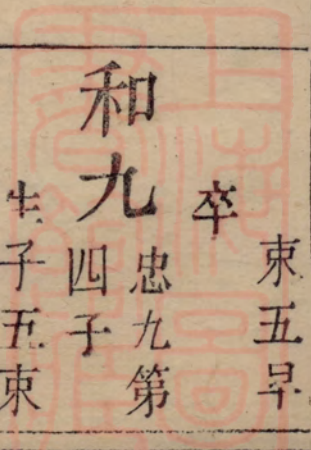 束五早
卒
和九
忠九第
四子
生子五束